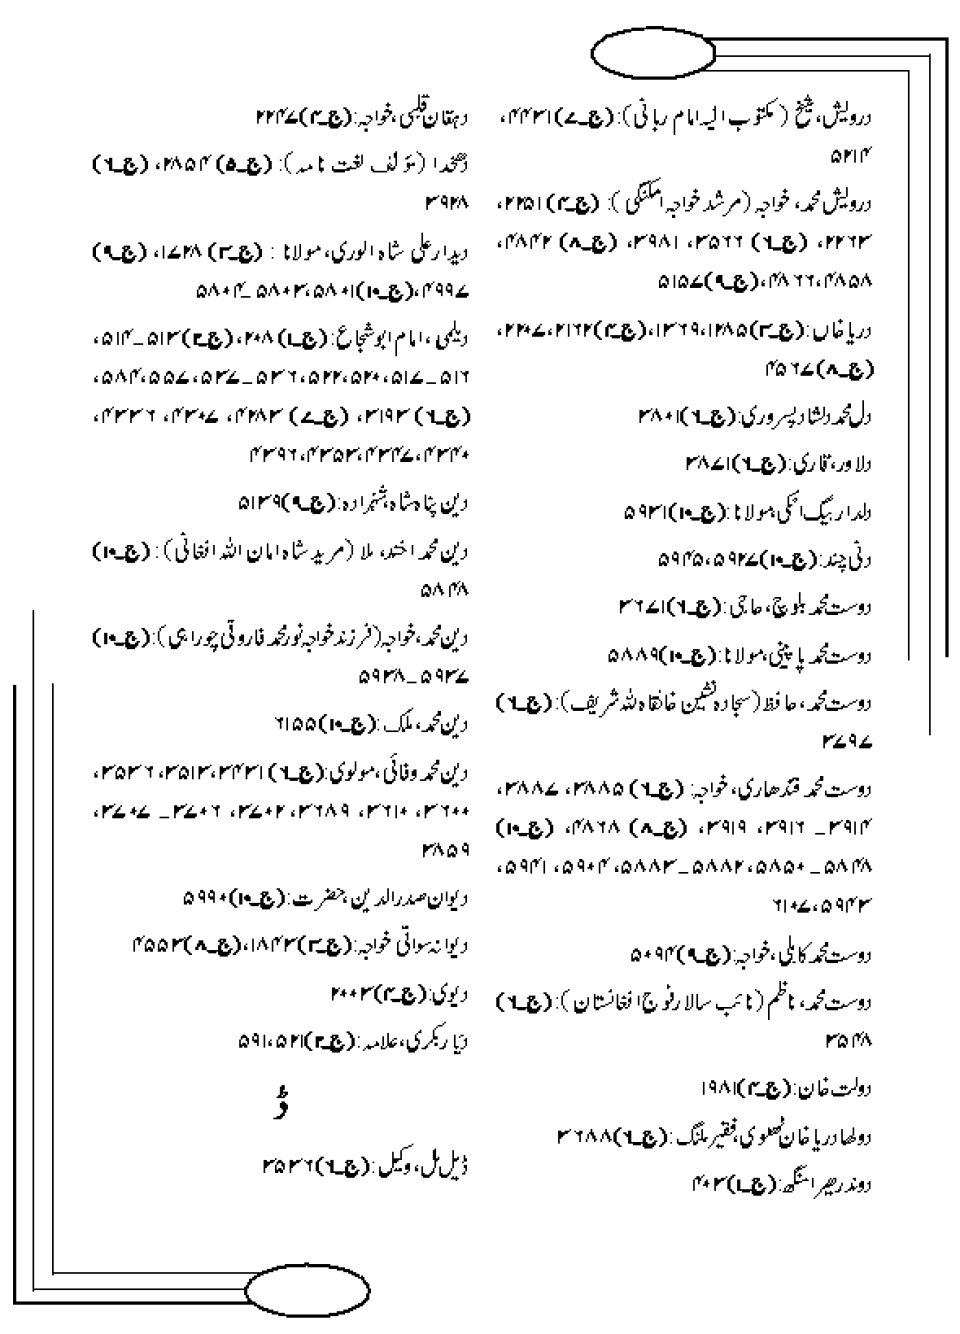 درویش، شیخ (مکتوب الیہ امام ربانی): (ج۔۷) ۴۴۳۱،
۵۲۱۴
درویش محمد، خواجہ (مرشد خواجہ امکنگی): (ج۔۴) ۲۲۵۱،
۲۲۶۳، (ج۔۶) ۳۵۶۶، ۳۹۸۱، (ج۔۸) ۴۸۴۲،
۴۸۵۸، ۴۸۶۶، (ج۔۹) ۵۱۵۷
دریا خاں: (ج۔۳) ۱۲۸۵، ۱۳۶۹، (ج۔۴) ۲۱۶۲، ۲۲۰۷،
(ج۔۸) ۴۵۶۷
دل محمد دلشاد پسروری: (ج۔۶) ۳۸۰۱
دلاور، قاری: (ج۔۶) ۳۸۷۱
دلدار بیگ اٹکی، مولانا: (ج۔۱۰) ۵۹۳۱
دنی چند: (ج۔۱۰) ۵۹۲۷، ۵۹۴۵
دوست محمد بلوچ، حاجی: (ج۔۶) ۳۶۷۱
دوست محمد پاچینی، مولانا: (ج۔۱۰) ۵۸۸۹
دوست محمد، حافظ (سجادہ نشین خانقاہ للہ شریف): (ج۔۶)
۳۷۹۷
دوست محمد قندھاری، خواجہ: (ج۔۶) ۳۸۸۵، ۳۸۸۷،
۳۹۱۴۔ ۳۹۱۶، ۳۹۱۹، (ج۔۸) ۴۸۶۸، (ج۔۱۰)
۵۸۴۸۔ ۵۸۵۰، ۵۸۸۲۔ ۵۸۸۳، ۵۹۰۴، ۵۹۴۱،
۵۹۴۳، ۶۱۰۷
دوست محمد کابلی، خواجہ: (ج۔۹) ۵۰۹۴
دوست محمد، ناظم (نائب سالار فوج افغانستان): (ج۔۶)
۳۵۴۸
دولت خان: (ج۔۴) ۱۹۸۱
دولھا دریا خان، فقیر ملنگ: (ج۔۶) ۳۶۸۸
سنگھ: (ج۔۱) ۴۰۳
دہقان قلبی، خواجہ: (ج۔۴) ۲۲۴۷
دھخدا (مؤلف لغت نامہ): (ج۔۵) ۲۸۵۴، (ج۔۶)
۳۹۲۸
دیدار علی شاہ الوری، مولانا: (ج۔۳) ۱۷۲۸، (ج۔۹)
۴۹۹۷، (ج۔۱۰) ۵۸۰۱، ۵۸۰۳۔ ۵۸۰۴
دیلمی، امام ابوشجاع: (ج۔۱) ۲۰۸، (ج۔۲) ۵۱۳۔ ۵۱۴،
۵۱۶۔ ۵۱۷، ۵۲۰، ۵۲۲، ۵۳۶۔ ۵۳۷، ۵۵۷، ۵۸۴،
(ج۔۶) ۳۱۹۳، (ج۔۷) ۴۲۸۳، ۴۳۰۷، ۴۳۳۶،
۴۳۴۰، ۴۳۴۷، ۴۳۵۳، ۴۳۹۶
دین پناہ شاہ، شہزادہ: (ج۔۹) ۵۱۳۹
دین محمد اخند، ملا (مرید شاہ امان اللہ افغانی): (ج۔۱۰)
۵۸۴۸
دین محمد، خواجہ (فرزند خواجہ نور محمد فاروقی چوراہی): (ج۔۱۰)
۵۹۳۷۔ ۵۹۳۸
دین محمد، ملک: (ج۔۱۰) ۶۱۵۵
دین محمد وفائی، مولوی: (ج۔۶) ۳۴۳۱، ۳۵۱۳، ۳۵۳۶،
۳۶۰۰، ۳۶۱۰، ۳۶۸۹، ۳۷۰۲، ۳۷۰۶۔ ۳۷۰۷،
۳۸۵۹
دیوان صدر الدین، حضرت: (ج۔۱۰) ۵۹۹۰
دیوانہ سواتی خواجہ: (ج۔۳) ۱۸۴۳، (ج۔۸) ۴۵۵۳
دیوی: (ج۔۴) ۲۰۰۳
دیاربکری، علامہ: (ج۔۲) ۵۲۱، ۵۹۱
ڈ
ڈیل مل، وکیل: (ج۔۶) ۳۵۳۶